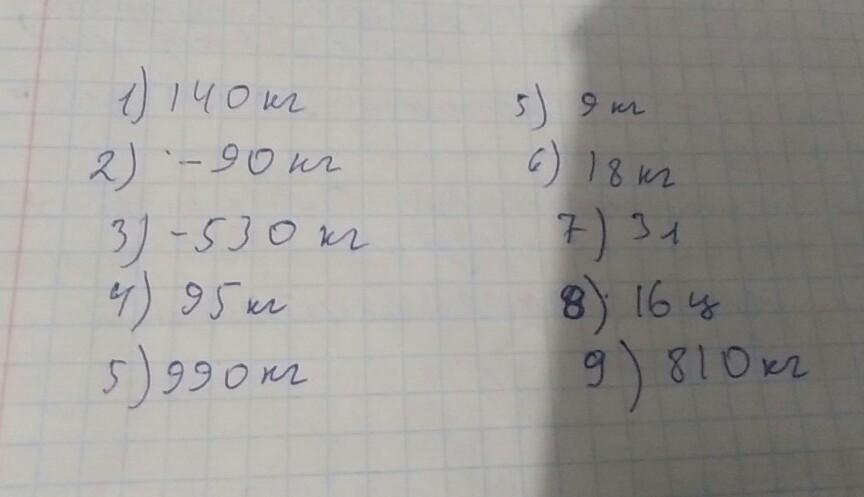 1) 140 кг
2) -90 кг
3) -530 кг
4) 95 кг
5) 990 кг
5) 9 кг
6) 18 кг
7) 3 л
8) 16 ц
9) 810 кг